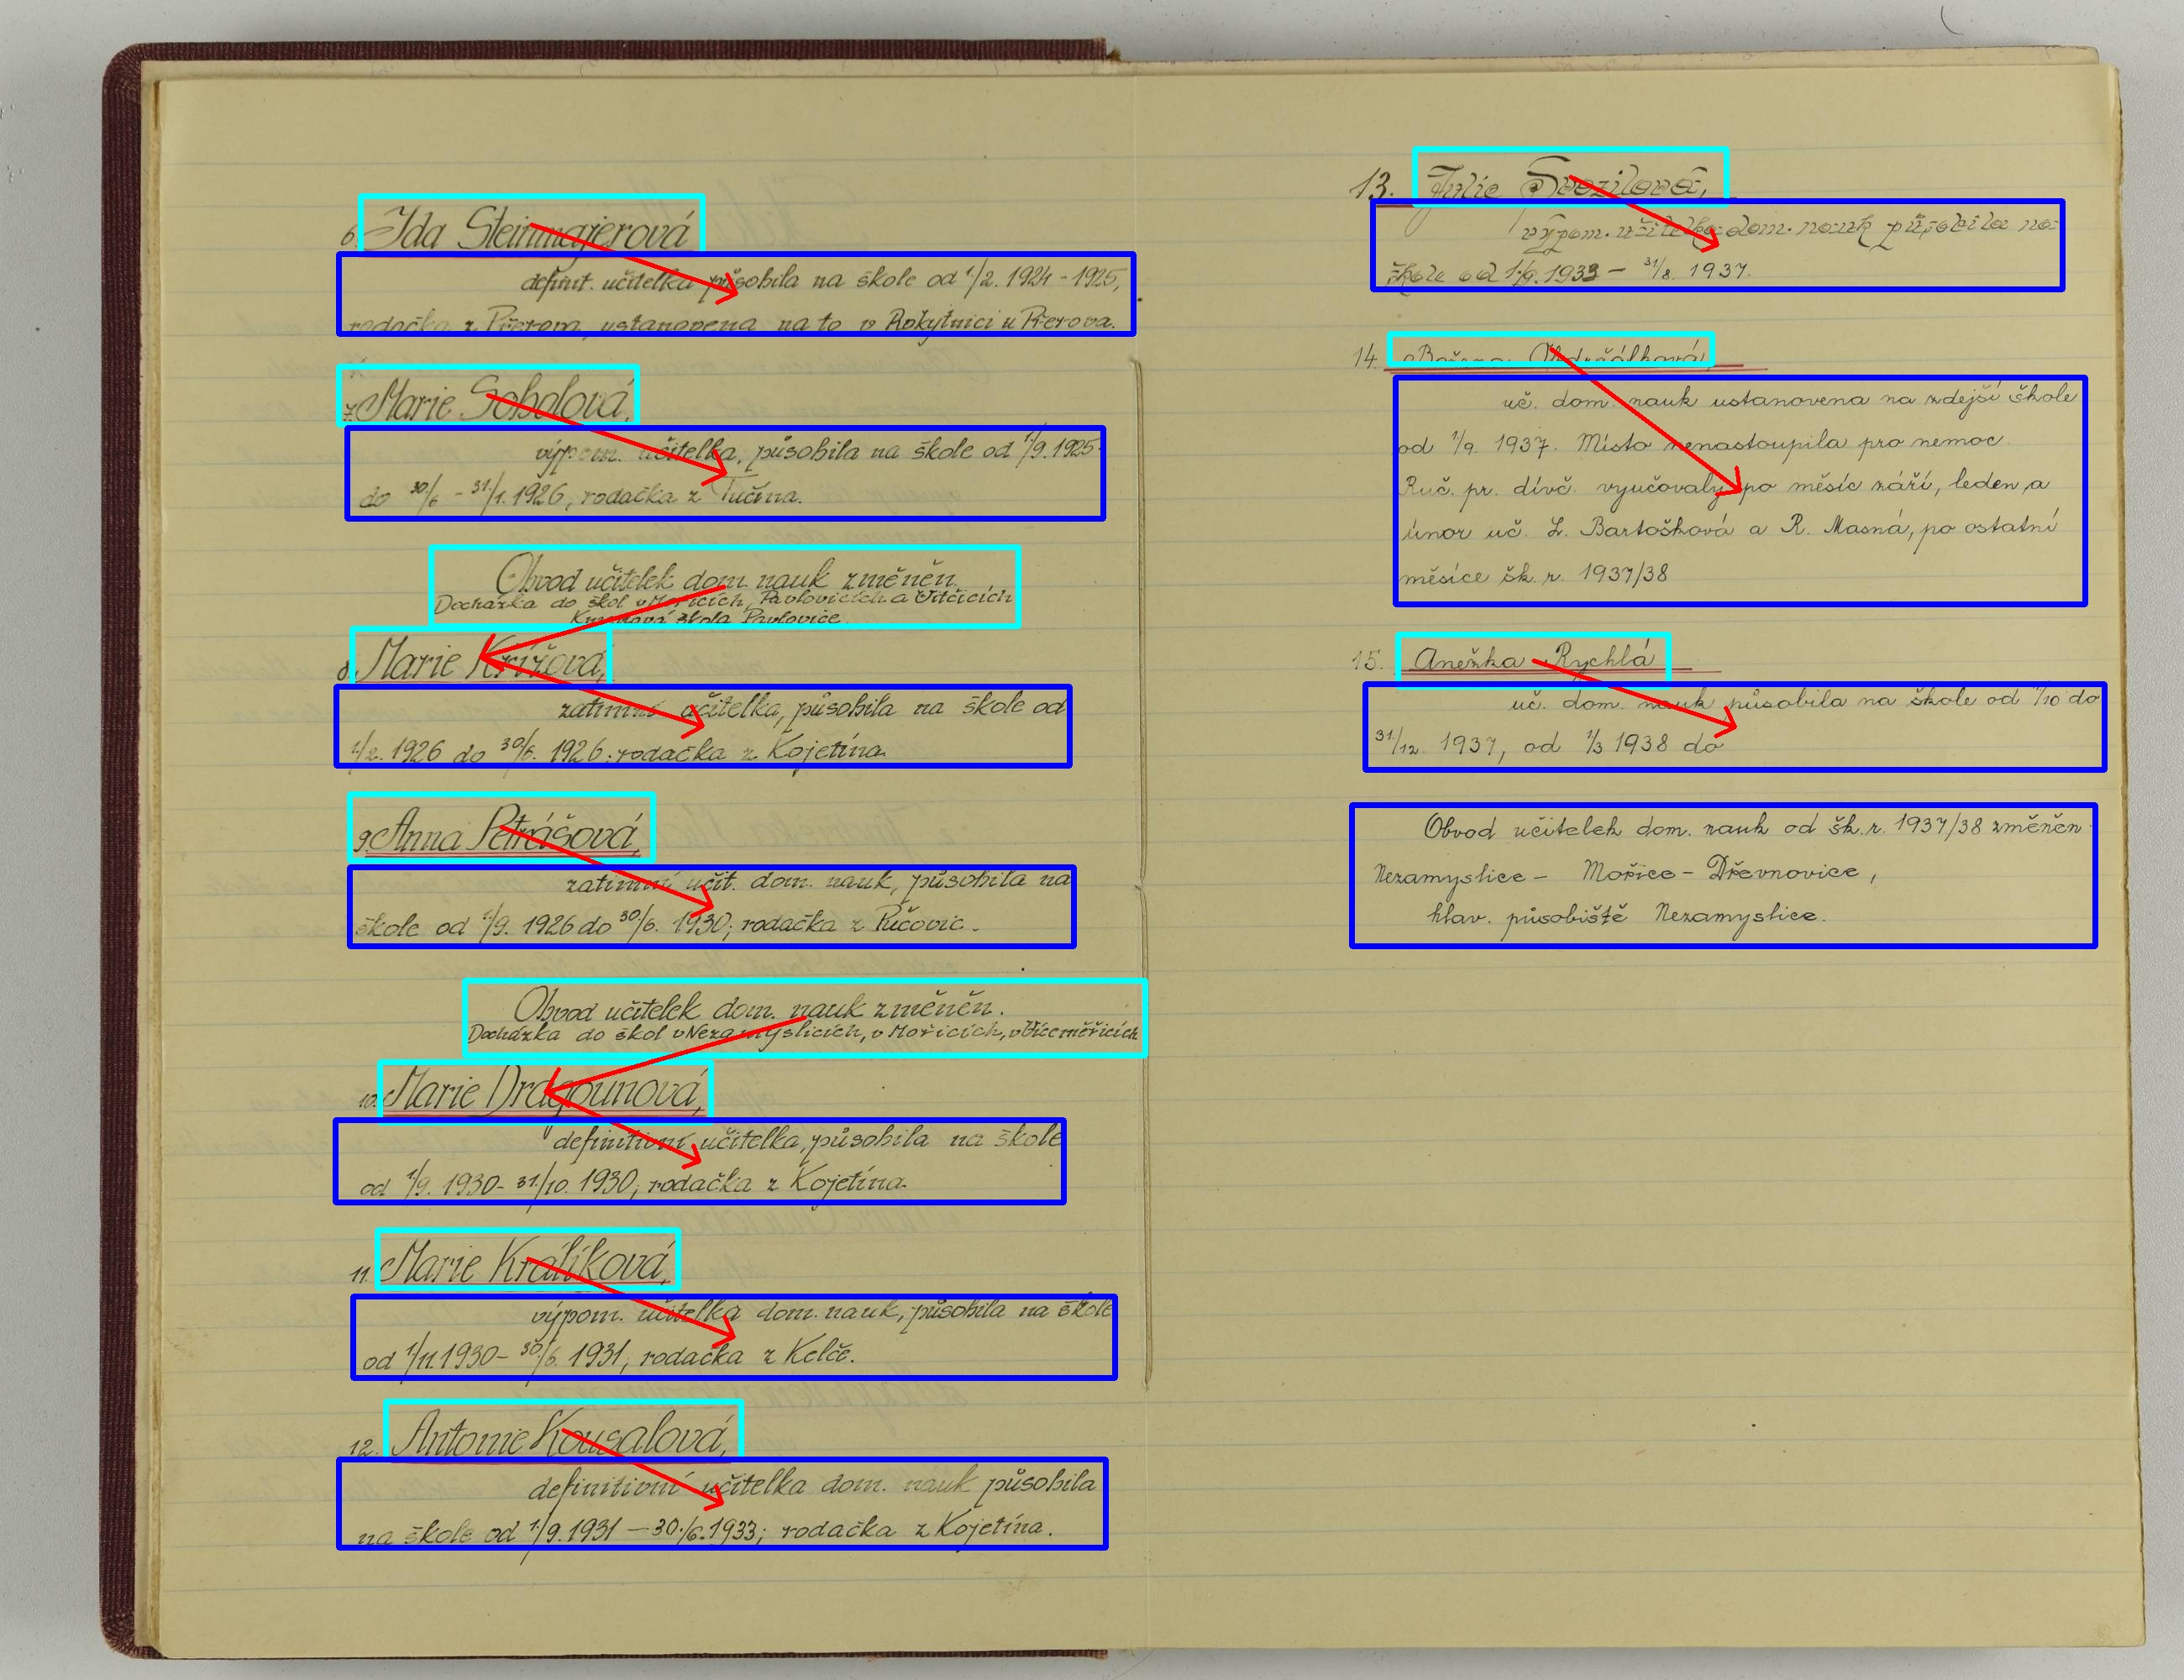 6. Ida Steinmajerová
definit. učitelka působila na škole od 1/2. 1924 - 1925,
rodačka z Přerova, ustanovena na to v Rokytnici u Přerova.
7. Marie Sobolová,
výpom. učitelka, působila na škole od 1/9. 1925
do 30/6 - 31/1. 1926, rodačka z Tučína.
Obvod učitelek dom. nauk změněn.
Docházka do škol v Mořicích, Pavlovicích a Vitčicích
Kmenová škola Pavlovice.
8. Marie Křížová,
zatimní učitelka, působila na škole od
1/2. 1926 do 30/6. 1926; rodačka z Kojetína.
9. Anna Petrášová,
zatimní učit. dom. nauk, působila na
škole od 1/9. 1926 do 30/6. 1930; rodačka z Pučovic.
Obvod učitelek dom. nauk změněn.
Docházka do škol v Nezamyslicích, v Mořicích, v Víceměřicích
10. Marie Dragounová,
definitivní učitelka, působila na škole
od 1/9. 1930 - 31./10. 1930; rodačka z Kojetína.
11. Marie Králíková,
výpom. učitelka dom. nauk, působila na škole
od 1/11 1930 - 30/6. 1931, rodačka z Kelče.
12. Antonie Kousalová,
definitivní učitelka dom. nauk působila
na škole od 1./9. 1931 — 30./6. 1933; rodačka z Kojetína.
13. Julie Svozilová,
výpom. učitelka dom. nauk působila na
škole od 1./9. 1933 — 31/8. 1937.
14. Božena Ondrušálková,
uč. dom. nauk ustanovena na zdejší škole
od 1/9. 1937. Místo nenastoupila pro nemoc.
Ruč. pr. dívč. vyučovaly po měsíc září, leden, a
únor uč. L. Bartošková a R. Masná, po ostatní
měsíce šk. r. 1937/38
15. Anežka Rychlá
uč. dom. nauk působila na škole od 1/10 do
31./12. 1937, od 1/3 1938 do
Obvod učitelek dom. nauk od šk. r. 1937/38 změněn
Nezamyslice - Mořice - Dřevnovice,
hlav. působiště Nezamyslice.